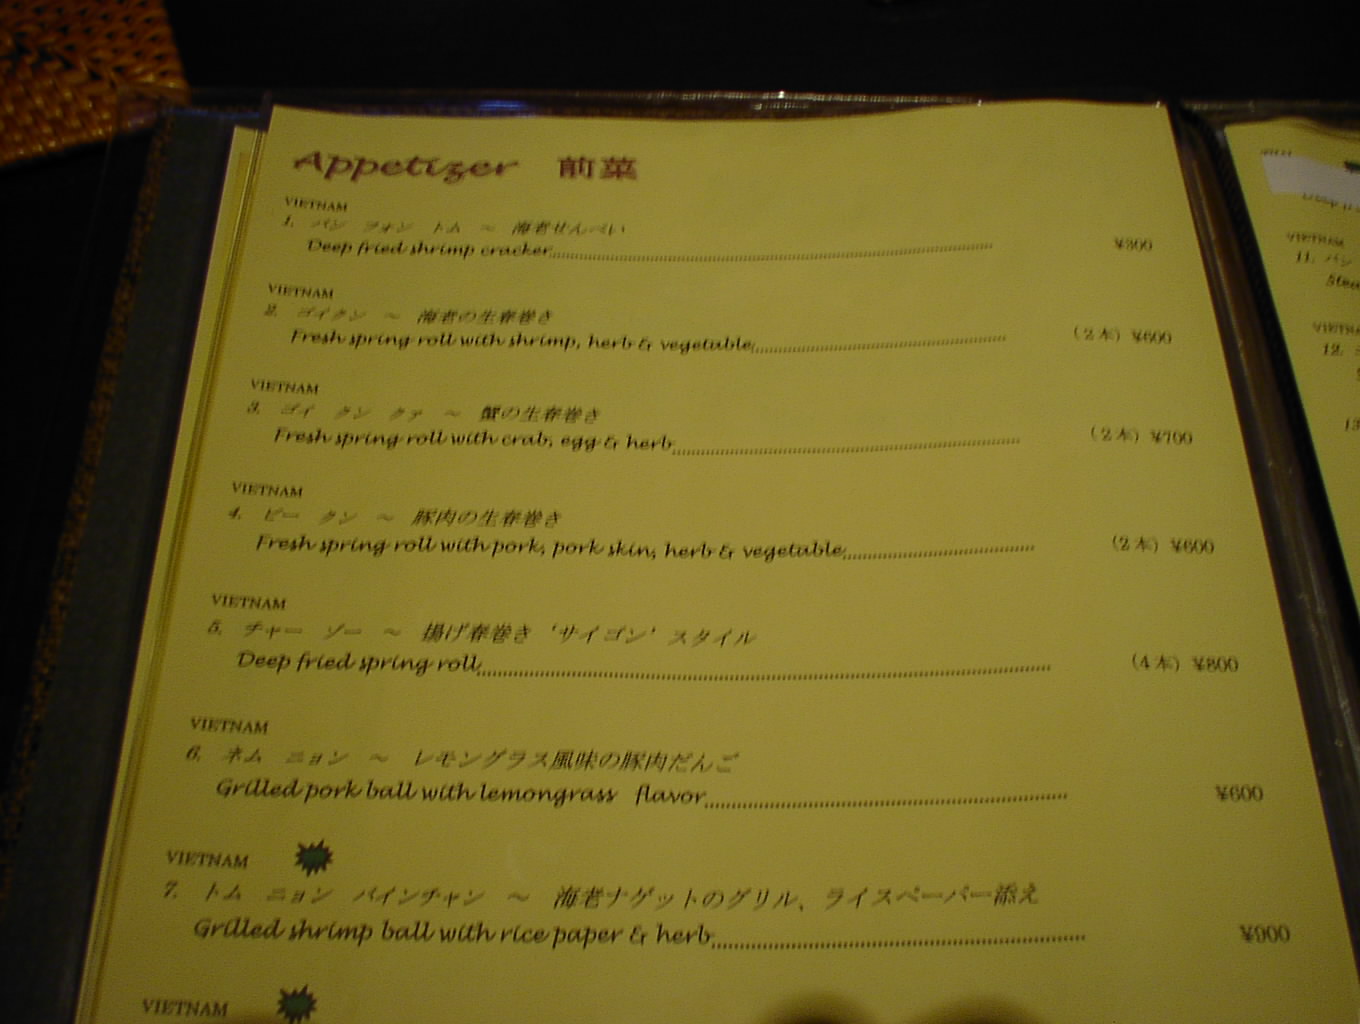 Appetizer 前菜
VIETNAM
1. バン フォン トム ～ 海老せんべい
Deep fried shrimp cracker ¥300
VIETNAM
2. ゴイクン ～ 海老の生春巻き
Fresh spring roll with shrimp, herb & vegetable (2本) ¥600
VIETNAM
3. ゴイ クン クァ ～ 蟹の生春巻き
Fresh spring roll with crab, egg & herb (2本) ¥700
VIETNAM
4. ビー クン ～ 豚肉の生春巻き
Fresh spring roll with pork, pork skin, herb & vegetable (2本) ¥600
VIETNAM
5. チャー ゾー ～ 揚げ春巻き ‘サイゴン’ スタイル
Deep fried spring roll (4本) ¥800
VIETNAM
6. ネム ニョン ～ レモングラス風味の豚肉だんご
Grilled pork ball with lemongrass flavor ¥600
VIETNAM
7. トム ニョン バインチャン ～ 海老ナゲットのグリル、ライスペーパー添え
Grilled shrimp ball with rice paper & herb ¥900
VIETNAM
VIETNAM
11. バン
VIETNAM
12.
13